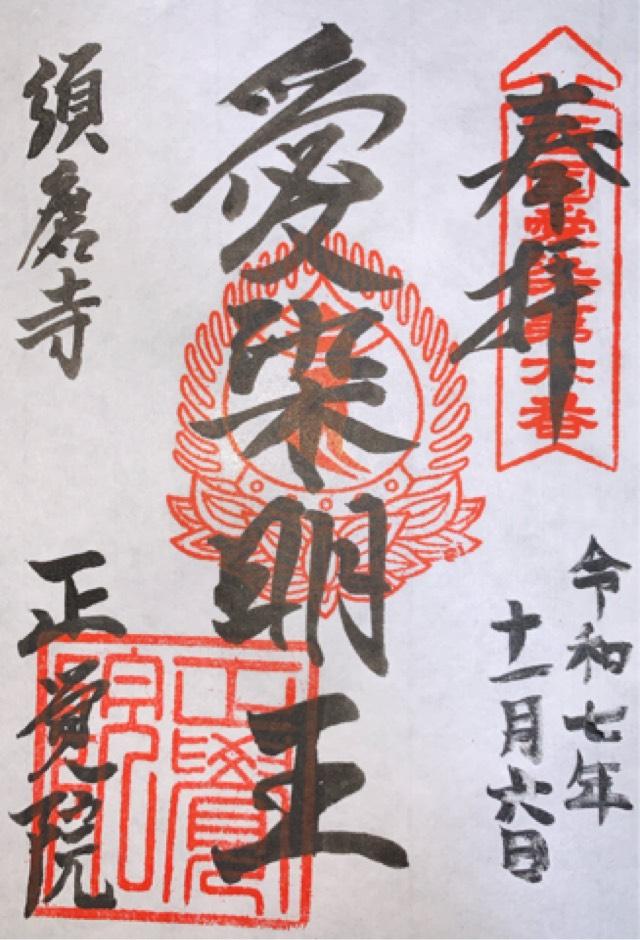 奉拝
令和七年
十一月六日
愛染明王
須磨寺
正覚院